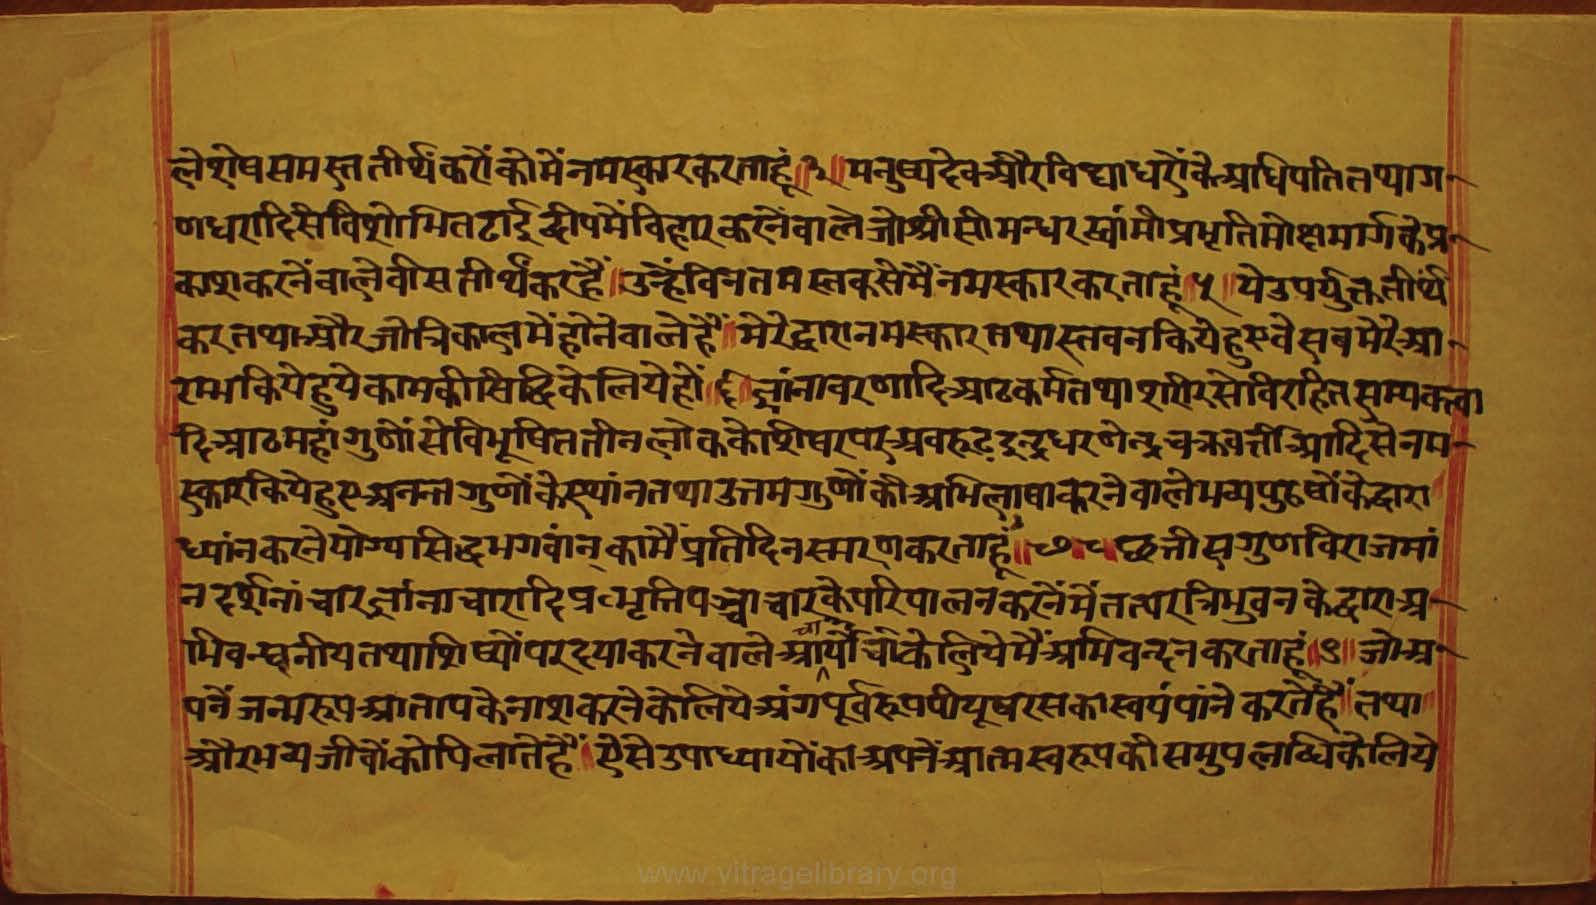 ले शेष समस्त तीर्थंकरों को में नमस्कार करता हूं ॥३॥ मनुष्य देव और विद्याधरों कै अधिपति तथा ग-
णधरादि सें विशोभित ढाई द्वीप में विहार करनें वाले जो श्री सीमन्धर स्वांमी प्रभृति मोक्षमार्ग के प्र-
काश करनें वाले वीस तीर्थंकर हैं । उन्हें विनत मस्तक सें मैं नमस्कार करता हूं ॥५॥ ये उपर्युक्त तीर्थं
कर तथा और जो त्रिकाल में होने वाले हैं ॥ मेरे द्वारा नमस्कार तथा स्तवन किये हुए वे सब मेरे आ-
रम्भ किये हुये काम की सिद्धि के लिये हों ॥६॥ ज्ञांनावरणादि आठ कर्म तथा शरीर से विरहित सम्यक्त्वा
दि आठ महां गुणों से विभूषित तीन लोक के शिषर पर अवरूढ़ इन्द्र धरणेन्द्र चक्रवर्त्ती आदि सें नम-
स्कार किये हुए अनन्त गुणों कै स्थांन तथा उत्तम गुणों की अभिलाषा करने वाले भव्य पुरुषों के द्वारा
ध्यांन करने योग्य सिद्ध भगवांन् का मैं प्रतिदिन स्मरण करता हूं ॥७॥८॥ छत्तीस गुण विराजमां
न दर्शनांचार ज्ञांनाचारादि प्रभृत्ति पञ्चाचार कै परिपालन करनें में तत्पर त्रिभुवन के द्वारा अ-
भिवन्दनीय तथा शिष्यों पर दया करने वाले आचार्यों के लिये मैं अभिवन्दन करता हूं ॥९॥ जो अ-
पनें जन्मरूप आताप के नाश करने के लिये अंग पूर्वरूप पीयूष रस का स्वयं पांन करतें हैं । तथा
और भव्य जीवों को पिलाते हैं । ऐसे उपाध्यायों का अपनें आत्म स्वरूप की समुपलब्धि के लिये
www.vitragelibrary.org